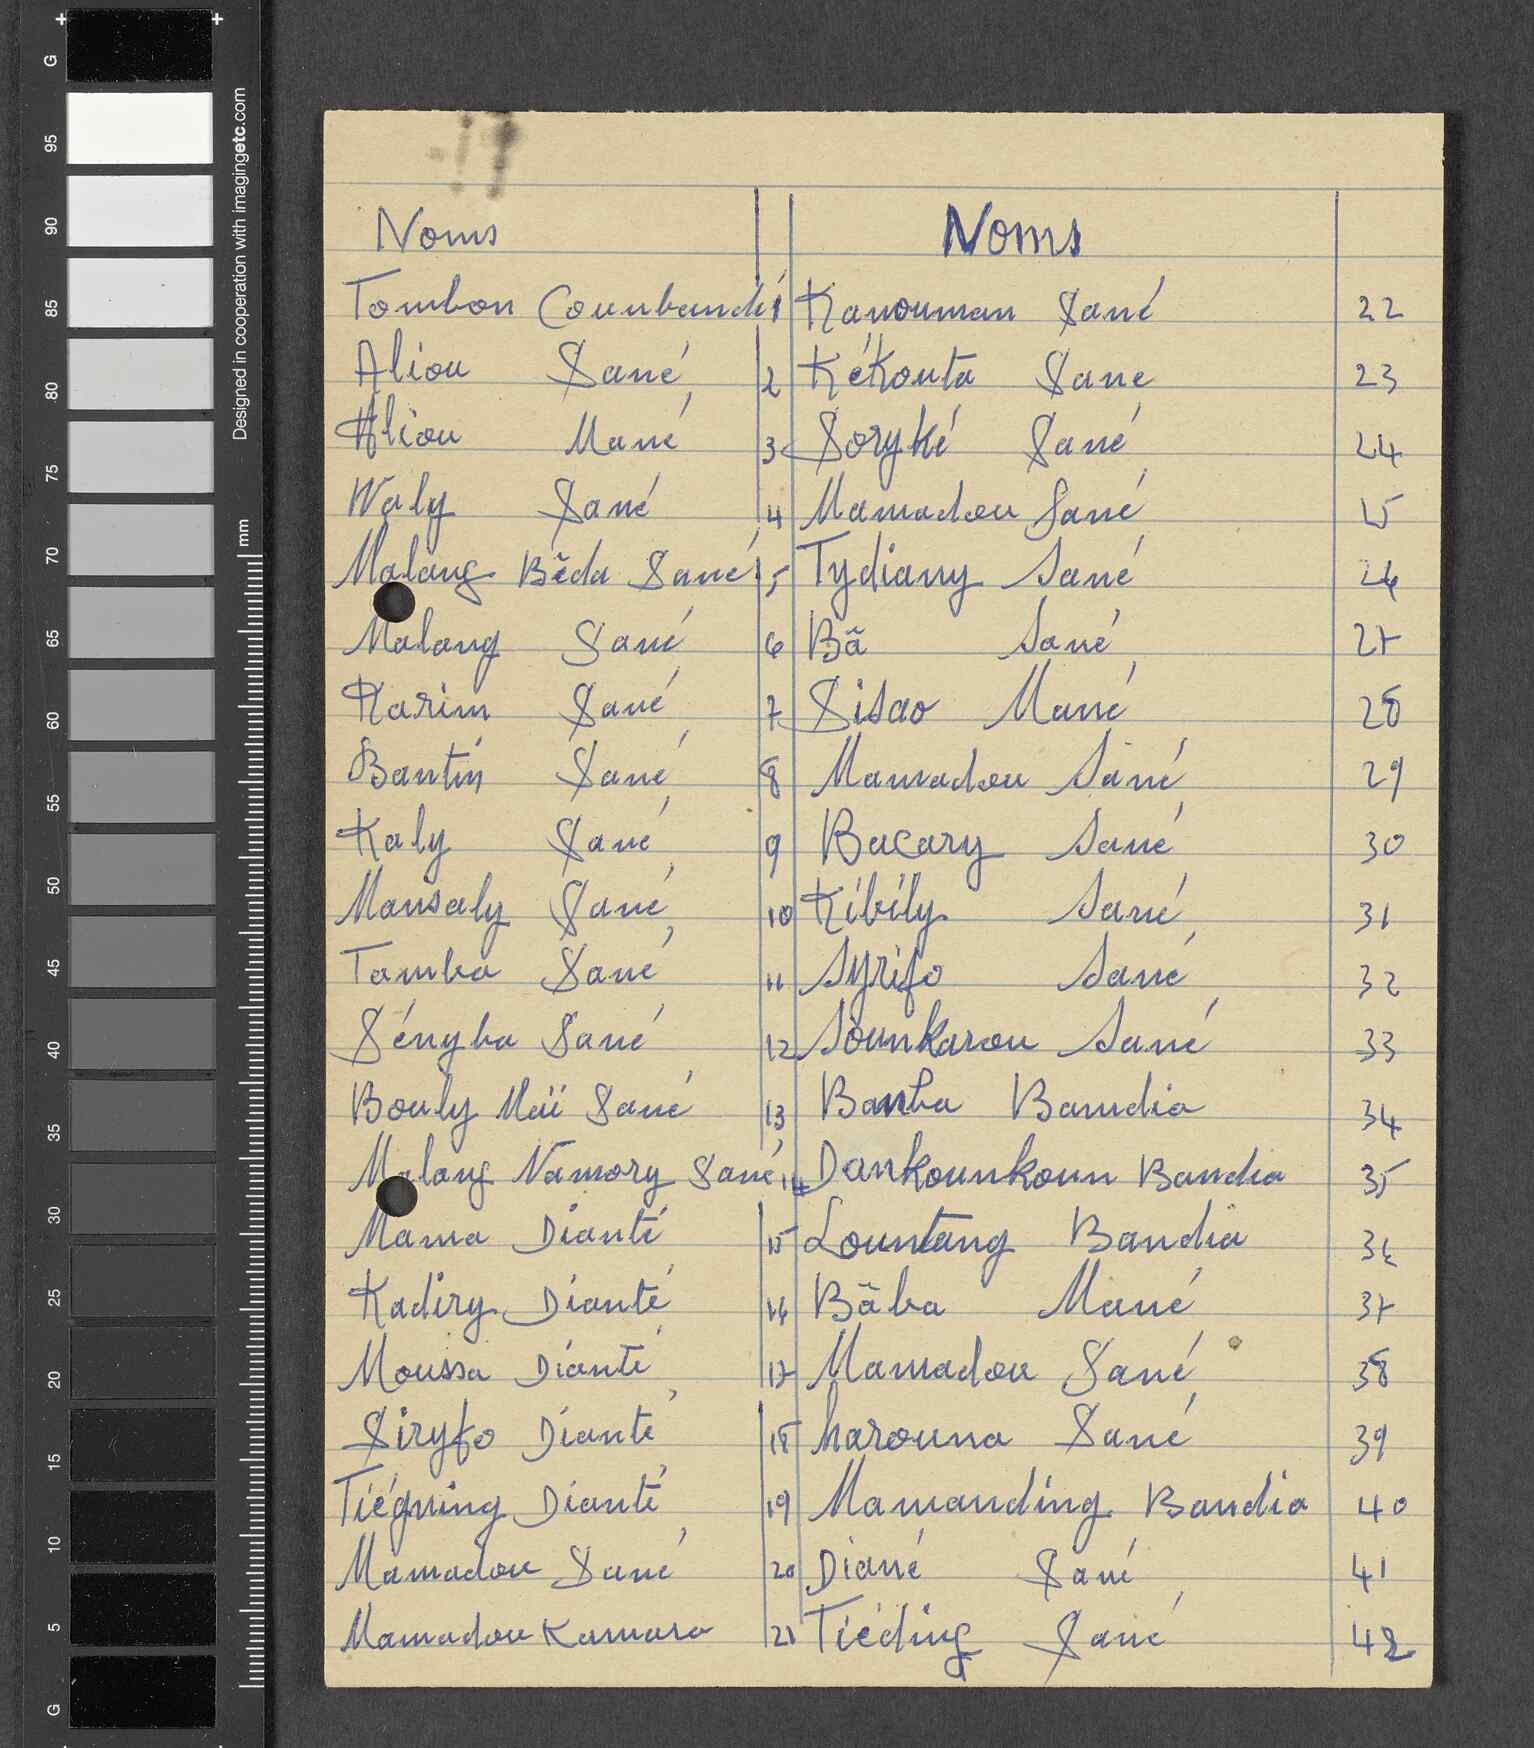 Noms
Tombon Counbandi 1
Aliou Sané 2
Aliou Mané 3
Waly Sané 4
Malang Bēda Sané 5
Malang Sané 6
Karim Sané 7
Bantin Sané 8
Kaly Sané 9
Mansaly Sané 10
Tamba Sané 11
Sényba Sané 12
Bouly Maï Sané 13
Malang Namory Sané 14
Mama Dianté 15
Kadiry Dianté 16
Moussa Dianté 17
Siryfo Dianté 18
Tiégning Dianté 19
Mamadou Sané 20
Mamadou Kamara 21
Noms
Kanouman Sané 22
Kékouta Sané 23
Soryké Sané 24
Mamadou Sané 25
Tydiany Sané 26
Bã Sané 27
Sisao Mané 28
Mamadou Sané 29
Bacary Sané 30
Kibily Sané 31
Syrifo Sané 32
Sounkarou Sané 33
Banba Bandia 34
Dankounkoun Bandia 35
Lountang Bandia 36
Bãba Mané 37
Mamadou Sané 38
harouna Sané 39
Mamanding Bandia 40
Diané Sané 41
Tiéding Sané 42
G
95
90
85
80
75
70
65
60
55
50
45
40
35
30
25
20
15
10
5
G
Designed in cooperation with imagingetc.com
mm